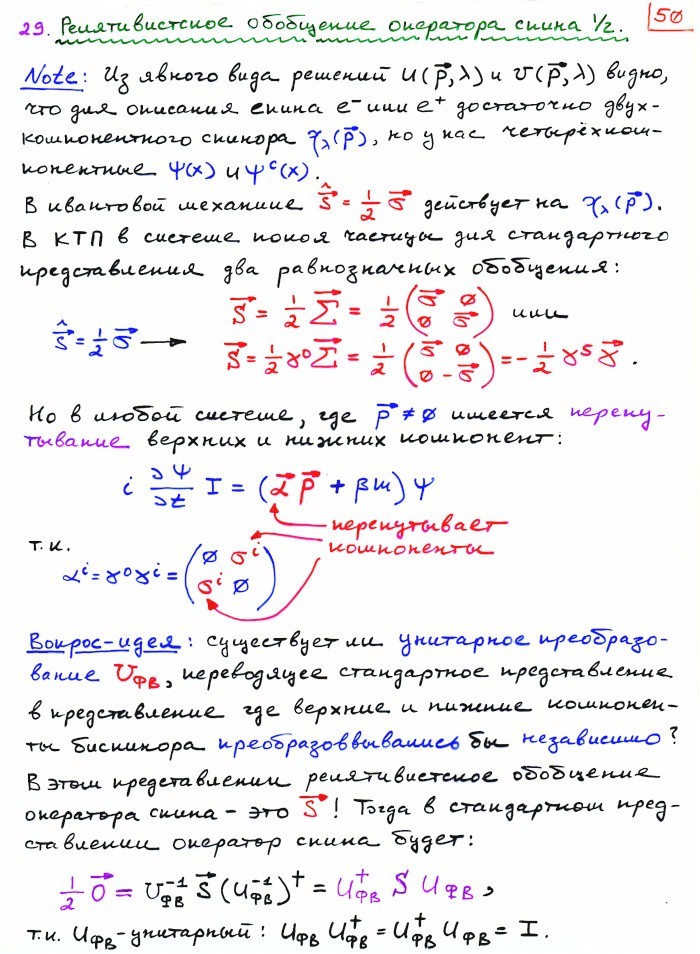 29. Релятивистское обобщение оператора спина 1/2.
50
Note: Из явного вида решений u(p⃗,λ) и v(p⃗,λ) видно,
что для описания спина e⁻ или e⁺ достаточно двух-
компонентного спинора χ_λ(p⃗), но у нас четырёхком-
понентные Ψ(x) и Ψᶜ(x).
В квантовой механике ŝ⃗ = 1/2 σ⃗ действует на χ_λ(p⃗).
В КТП в системе покоя частицы для стандартного
представления два равнозначных обобщения:
ŝ⃗ = 1/2 σ⃗ → S⃗ = 1/2 Σ⃗ = 1/2 (σ⃗ 0 ; 0 σ⃗) или
S⃗ = 1/2 γ⁰ Σ⃗ = 1/2 (σ⃗ 0 ; 0 -σ⃗) = - 1/2 γ⁵ γ⃗.
Но в любой системе, где p⃗ ≠ 0 имеется перепу-
тывание верхних и нижних компонент:
i ∂Ψ/∂t I = (α⃗ p⃗ + βm) Ψ
перепутывает
компоненты
т.к.
αⁱ = γ⁰γⁱ = (0 σⁱ ; σⁱ 0)
Вопрос-идея: существует ли унитарное преобразо-
вание U_ФВ, переводящее стандартное представление
в представление где верхние и нижние компонен-
ты биспинора преобразоввывались бы независимо?
В этом представлении релятивистское обобщение
оператора спина - это S⃗! Тогда в стандартном пред-
ставлении оператор спина будет:
1/2 O⃗ = U_ФВ⁻¹ S⃗ (U_ФВ⁻¹)⁺ = U_ФВ⁺ S U_ФВ,
т.к. U_ФВ - унитарный: U_ФВ U_ФВ⁺ = U_ФВ⁺ U_ФВ = I.